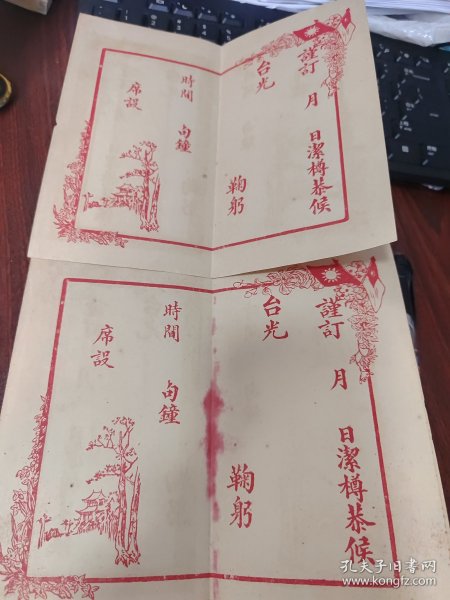 謹訂 月 日潔樽恭候
台光
鞠躬
時間 句鐘
席設
謹訂 月 日潔樽恭候
台光
鞠躬
時間 句鐘
席設
孔夫子旧书网
www.kongfz.com